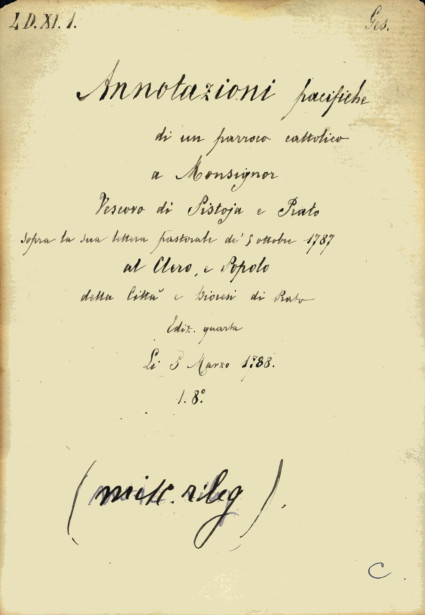 4 D. XI. 1.
Ges.
Annotazioni pacifiche
di un parroco cattolico
a Monsignor
Vescovo di Pistoja e Prato
sopra la sua lettera pastorale de' 5 ottobre 1787
al Clero, e Popolo
della Città e Diocesi di Prato
Ediz. quarta
Li 5 Marzo 1788.
1. 8°.
(misc. rileg).
C